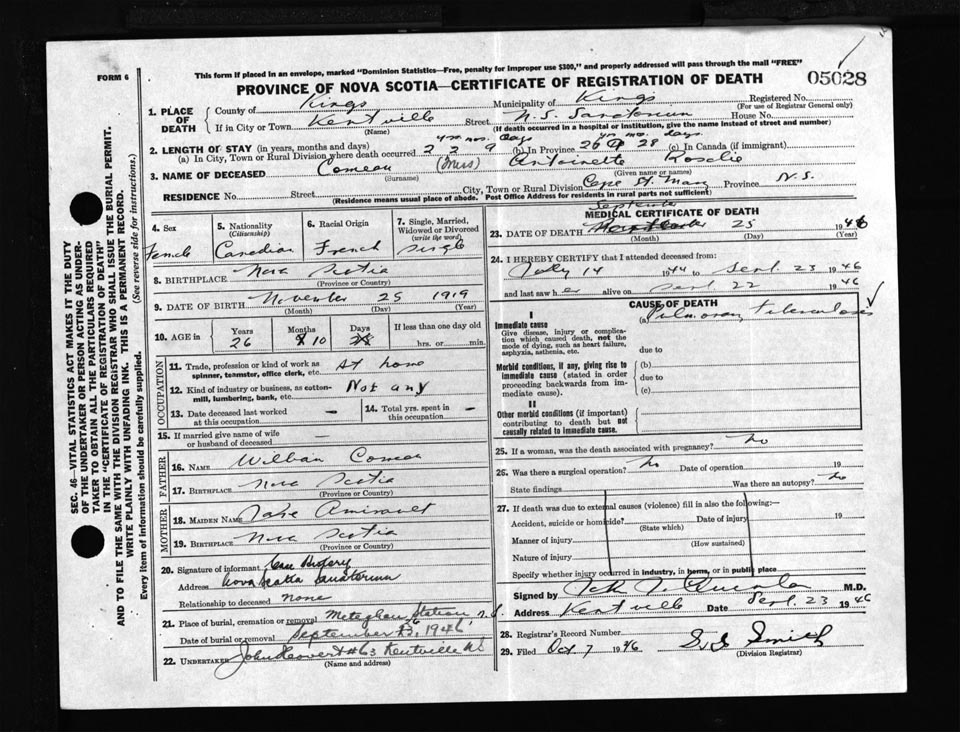 FORM 6
This form if placed in an envelope, marked "Dominion Statistics—Free, penalty for improper use $300," and properly addressed will pass through the mail "FREE"
PROVINCE OF NOVA SCOTIA—CERTIFICATE OF REGISTRATION OF DEATH
05028
1. PLACE OF DEATH
County of Kings Municipality of Kings Registered No.
(For use of Registrar General only)
If in City or Town Kentville Street N.S. Sanatorium House No.
(Name) (If death occurred in a hospital or institution, give its name instead of street and number)
2. LENGTH OF STAY (in years, months and days) yrs. mos. days yrs. mo. days.
(a) In City, Town or Rural Division where death occurred 2 2 9 (b) In Province 26 9 28 (c) In Canada (if immigrant)
3. NAME OF DECEASED Comeau (Miss) Antoinette Rosalie
(Surname) (Given name or names)
RESIDENCE No. Street City, Town or Rural Division Cape St. Mary Province N.S.
(Residence means usual place of abode. Post Office Address for residents in rural parts not sufficient)
4. Sex
Female
5. Nationality
(Citizenship)
Canadian
6. Racial Origin
French
7. Single, Married, Widowed or Divorced
(write the word)
Single
8. BIRTHPLACE Nova Scotia
(Province or Country)
9. DATE OF BIRTH November 25 1919
(Month) (Day) (Year)
10. AGE in Years Months Days If less than one day old
26 10 hrs. or min.
OCCUPATION
11. Trade, profession or kind of work as spinner, teamster, office clerk, etc. At home
12. Kind of industry or business, as cotton-mill, lumbering, bank, etc. Not any
13. Date deceased last worked at this occupation —
14. Total yrs. spent in this occupation —
15. If married give name of wife or husband of deceased —
FATHER
16. NAME Comeau
17. BIRTHPLACE Nova Scotia
(Province or Country)
MOTHER
18. MAIDEN NAME Amirault
19. BIRTHPLACE Nova Scotia
(Province or Country)
20. Signature of informant Case History
Address Nova Scotia Sanatorium
Relationship to deceased None
21. Place of burial, cremation or removal Meteghan Station N.S.
Date of burial or removal September 1946
22. UNDERTAKER John #63 Kentville NS
(Name and address)
MEDICAL CERTIFICATE OF DEATH
September
23. DATE OF DEATH 25 1946
(Month) (Day) (Year)
24. I HEREBY CERTIFY that I attended deceased from:
July 14 1944 to Sept. 23 1946
and last saw her alive on Sept. 22 1946
CAUSE OF DEATH
I
Immediate cause
Give disease, injury or complication which caused death, not the mode of dying, such as heart failure, asphyxia, asthenia, etc.
(a) Pulmonary tuberculosis
due to
Morbid conditions, if any, giving rise to immediate cause (stated in order proceeding backwards from immediate cause).
(b)
due to
(c)
II
Other morbid conditions (if important) contributing to death but not causally related to immediate cause.
25. If a woman, was the death associated with pregnancy? No
26. Was there a surgical operation? No Date of operation 19
State findings Was there an autopsy? No
27. If death was due to external causes (violence) fill in also the following:—
Accident, suicide or homicide? Date of injury 19
(State which)
Manner of injury
(How sustained)
Nature of injury
Specify whether injury occurred in industry, in home, or in public place
Signed by M.D.
Address Kentville Date Sept. 23 1946
28. Registrar's Record Number
29. Filed Oct 7 1946 Smith
(Division Registrar)
SEC. 46—VITAL STATISTICS ACT MAKES IT THE DUTY
OF THE UNDERTAKER OR PERSON ACTING AS UNDER-
TAKER TO OBTAIN ALL THE PARTICULARS REQUIRED
IN THE "CERTIFICATE OF REGISTRATION OF DEATH"
AND TO FILE THE SAME WITH THE DIVISION REGISTRAR WHO SHALL ISSUE THE BURIAL PERMIT.
WRITE PLAINLY WITH UNFADING INK. THIS IS A PERMANENT RECORD.
Every item of information should be carefully supplied. (See reverse side for instructions.)